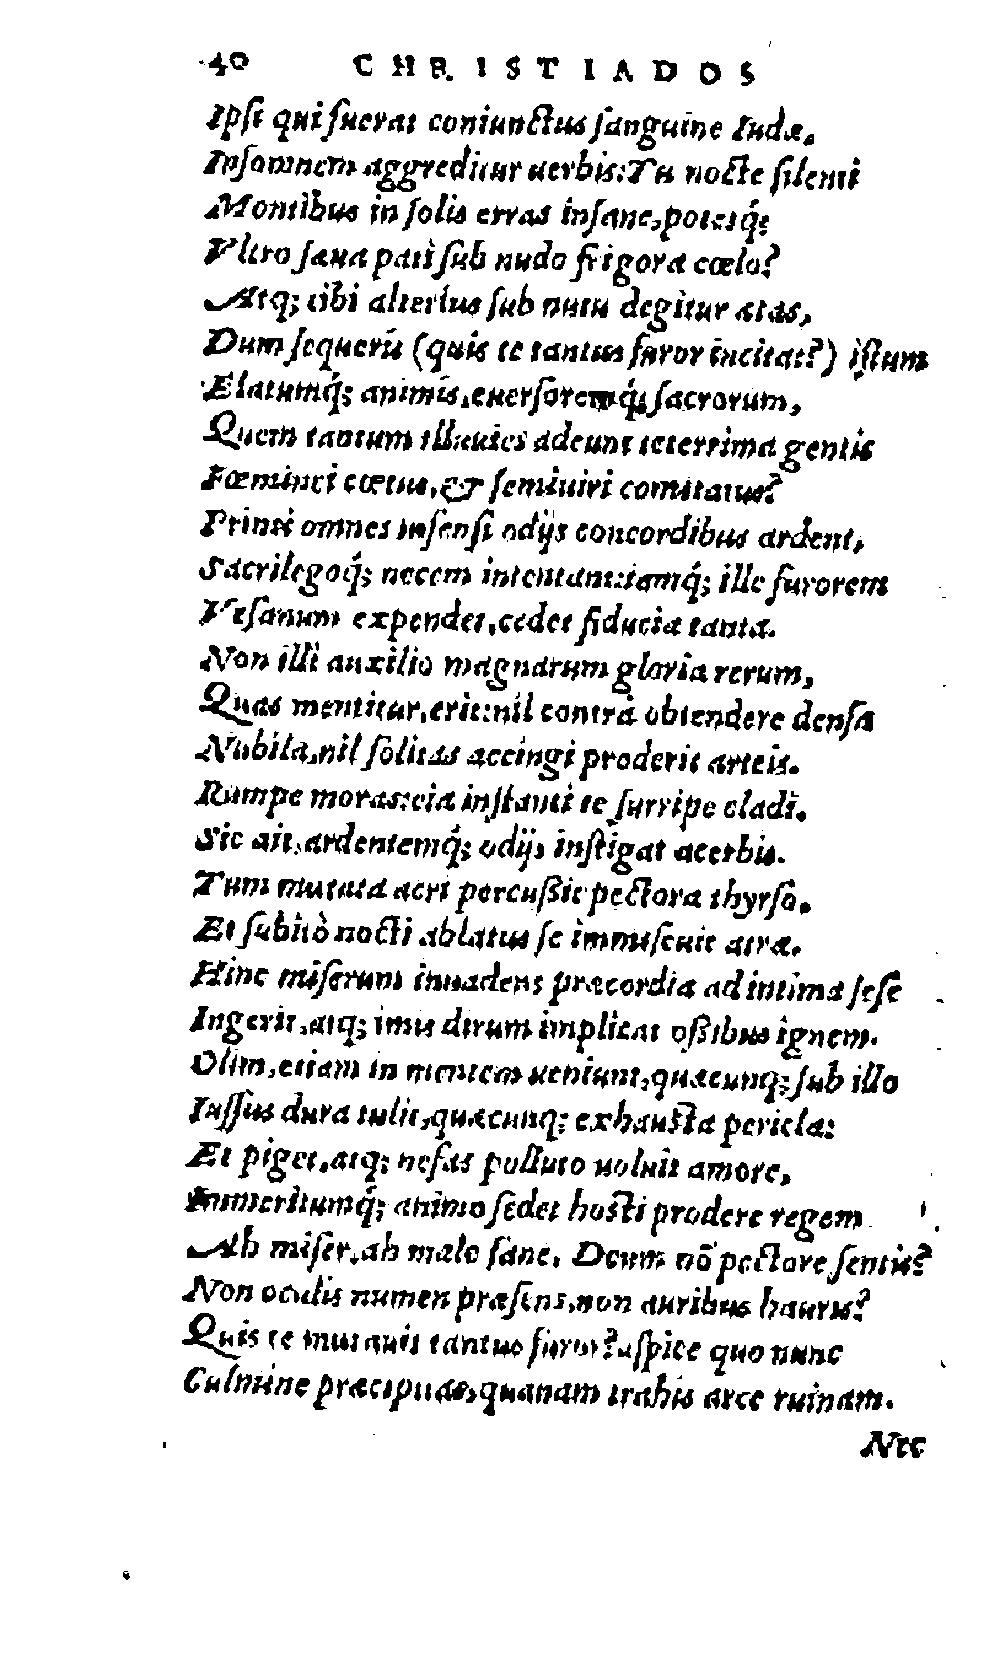 40 CHRISTIADOS
Ipsi qui fuerat coniunctus sanguine Iudæ.
Insomnem aggreditur uerbis: Tu nocte silenti
Montibus in solis erras insane, potesq́;
Vltro sæua pati sub nudo frigora cœlo?
Atq; tibi alterius sub nutu degitur ætas,
Dum sequeris (quis te tantus furor incitat?) istum
Elatumq́; animis, euersoremq́; sacrorum,
Quem tantum illuuies adeunt teterrima gentis
Fœminei cœtus, & semiuiri comitatus?
Primi omnes infensi odijs concordibus ardent,
Sacrilegoq́; necem intentant: iamq́; ille furorem
Vesanum expendet, cedet fiducia tanta.
Non illi auxilio magnarum gloria rerum,
Quas mentitur, erit: nil contrà obtendere densa
Nubila, nil solitas accingi proderit arteis.
Rumpe moras: eia instanti te surripe cladi.
Sic ait, ardentemq́; odijs instigat acerbis.
Tum mutata acri percußit pectora thyrso.
Et subitò nocti ablatus se immiscuit atræ.
Hinc miserum inuadens præcordia ad intima sese
Ingerit, atq; imis dirum implicat oßibus ignem.
Olim, etiam in mentem ueniunt, quæcunq; sub illo
Iussus dura tulit, quæcunq; exhausta pericla:
Et piget, atq; nefas polluto uoluit amore,
Immeritumq́; animo sedet hosti prodere regem
Ah miser, ah male sane, Deum nō pectore sentis?
Non oculis numen præsens, non auribus hauris?
Quis te mutauit tantus furor? aspice quo nunc
Culmine præcipitas, quanam trahis arce ruinam.
Nec